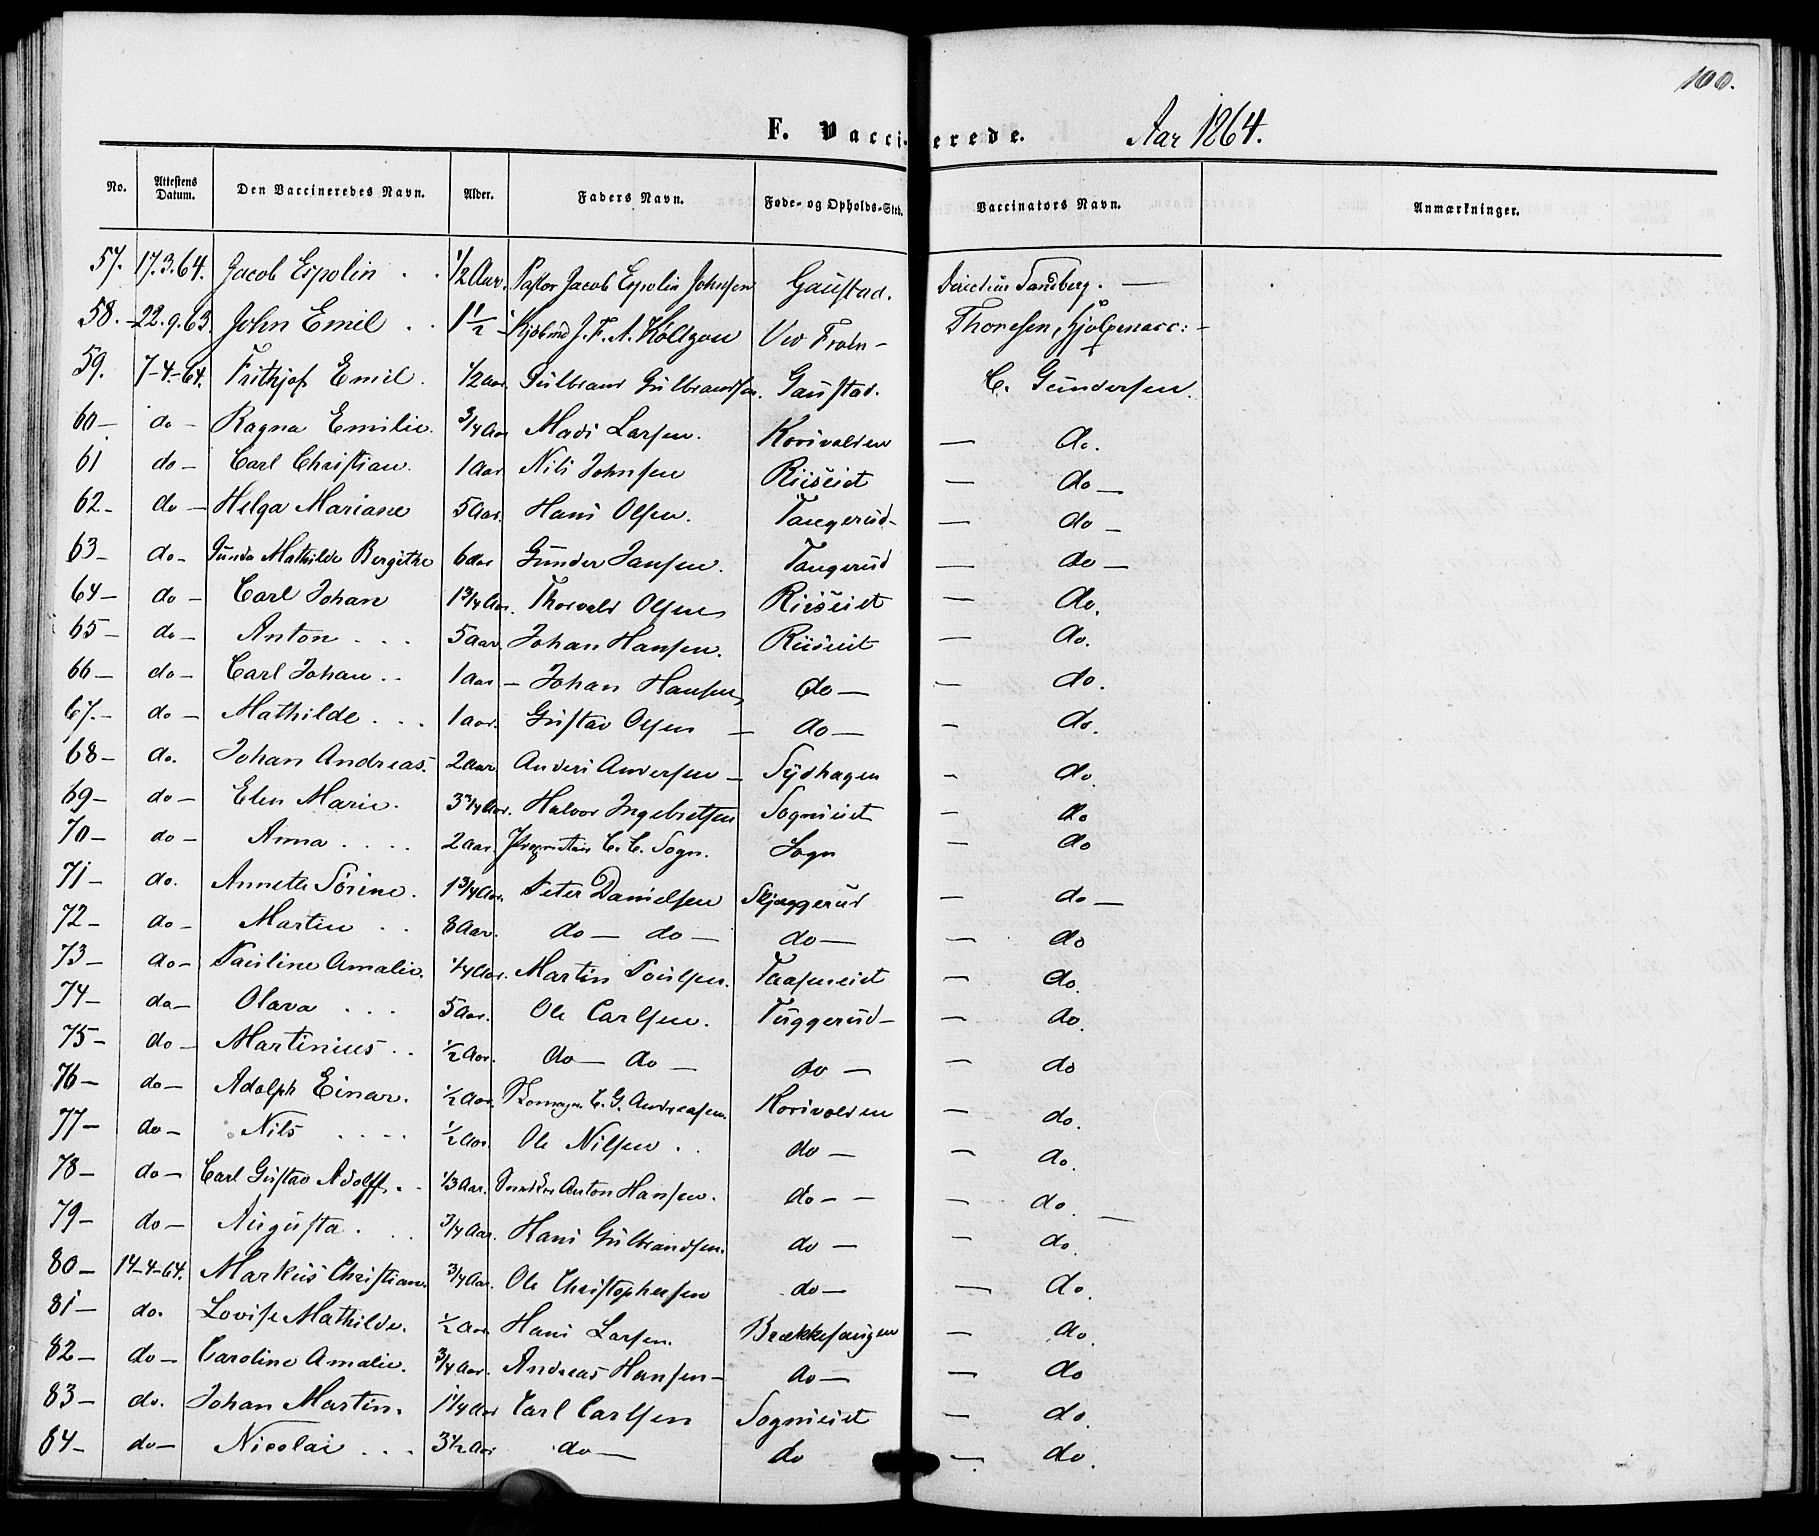 100.
F. Vaccinerede. Aar 1864.
No. Attestens Datum. Den Vaccineredes Navn. Alder. Faders Navn. Føde- og Opholds-Sted. Vaccinators Navn. Anmærkninger.
57. 17.3.64. Jacob Espolin . . 1/2 Aar. Pastor Jacob Espolin Johnsen Gaustad. Directeur Sandberg. —
58. - 22.9.63. John Emil . . 1 1/2 - J. F. A. Holtzou Ved Froen - Thoresen, Hjelpevacc: -
59. 7-4-64. Frithjof Emil . 1/2 aar Gulbrand Gulbrandsen. Gaustad. C. Gundersen.
60- do - Ragna Emilie. 3/4 Aar Mads Larsen. Korsvolden — do.
61 do - Carl Christian. 1 Aar Nils Johnsen Riiseiet — do —
62.- do - Helga Mariane 5 Aar. Hans Olsen. Tangerud- — do —
63- do- Gunda Mathilde Bergithe 6 Aar Gunder Jansen. Tangerud — do —
64- do - Carl Johan 1 3/4 Aar. Thorvald Olsen Riiseiet — do.
65- do - Anton . . . 5 Aar. Johan Hansen. Riiseiet — do.
66- do- Carl Johan . . 1 Aar - Johan Hansen do — — do.
67.- do - Mathilde . . . 1 aar. Gustav Olsen — do — — do.
68- do. Johan Andreas. 2 aar Anders Andersen - Sydhagen - do.
69- do - Elen Marie. 3 3/4 Aar. Halvor Ingebretsen Sogneiet - do
70- do - Anna . . . . 2 Aar. Proprietair C. C. Sogn. Sogn — do
71- do. Annette Sørine. 1 3/4 Aar. Peter Danielsen Skjæggerud — do —
72- do- Martin . . 8 Aar. do — do — do — — do
73- do- Pauline Amalie. 1/4 Aar. Martin Poulsen. Taaseneiet — do.
74- do- Olava . . . 5 Aar. Ole Carlsen. Tuggerud- — do.
75- do- Martinius . . 1/2 Aar. do — do — do — — do
76- do- Adolph Einar. 1/2 Aar. C. G. Andreasen. Korsvolden — do.
77- do- Nils . . . . 1/2 Aar. Ole Nilsen . . do — — do.
78- do- Carl Gustav Adolff. . 1/3 Aar. Snedker Anton Hansen. do - - — do. —
79- do- Augusta . . . 3/4 Aar. Hans Gulbrandsen. do — — do.
80- 14-4-64. Markus Christian. 3/4 Aar. Ole Christophersen do — — do.
81- do. Lovise Mathilde. 1/2 Aar Hans Larsen. Brækkefangen — do.
82- do- Caroline Amalie. 3/4 Aar. Andreas Hansen - do — — do
83- do. Johan Martin. 1 1/4 Aar Carl Carlsen Sogneiet — do.
84- do- Nicolai . . . 3 1/2 Aar do — do — do.